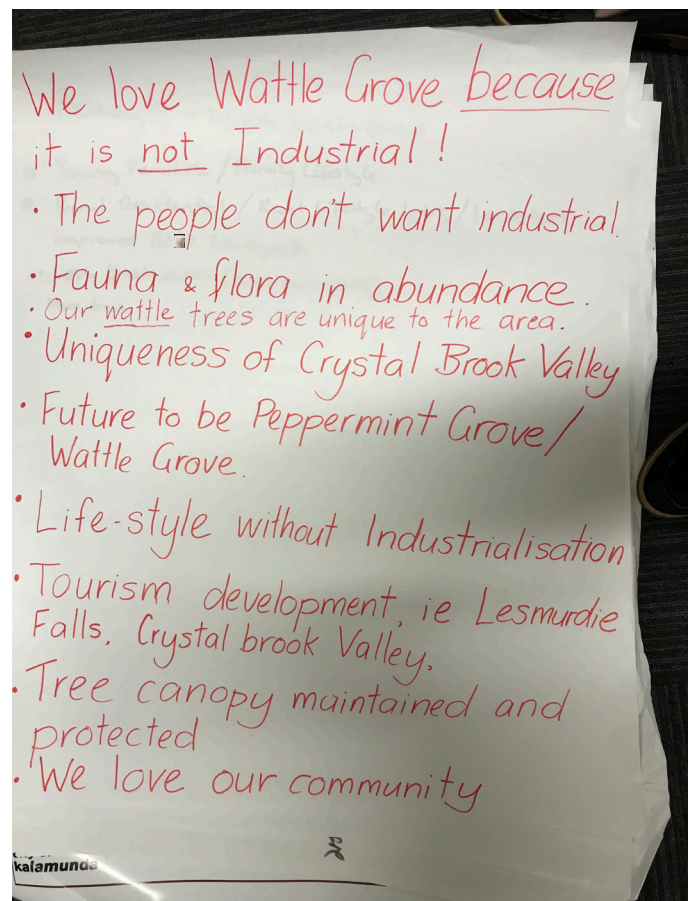 We love Wattle Grove because
it is not Industrial!
· The people don't want industrial.
· Fauna & flora in abundance.
· Our wattle trees are unique to the area.
· Uniqueness of Crystal Brook Valley
· Future to be Peppermint Grove/
Wattle Grove.
· Life-style without Industrialisation
· Tourism development, ie Lesmurdie
Falls, Crystal brook Valley.
· Tree canopy maintained and
protected
· We love our community
kalamunda